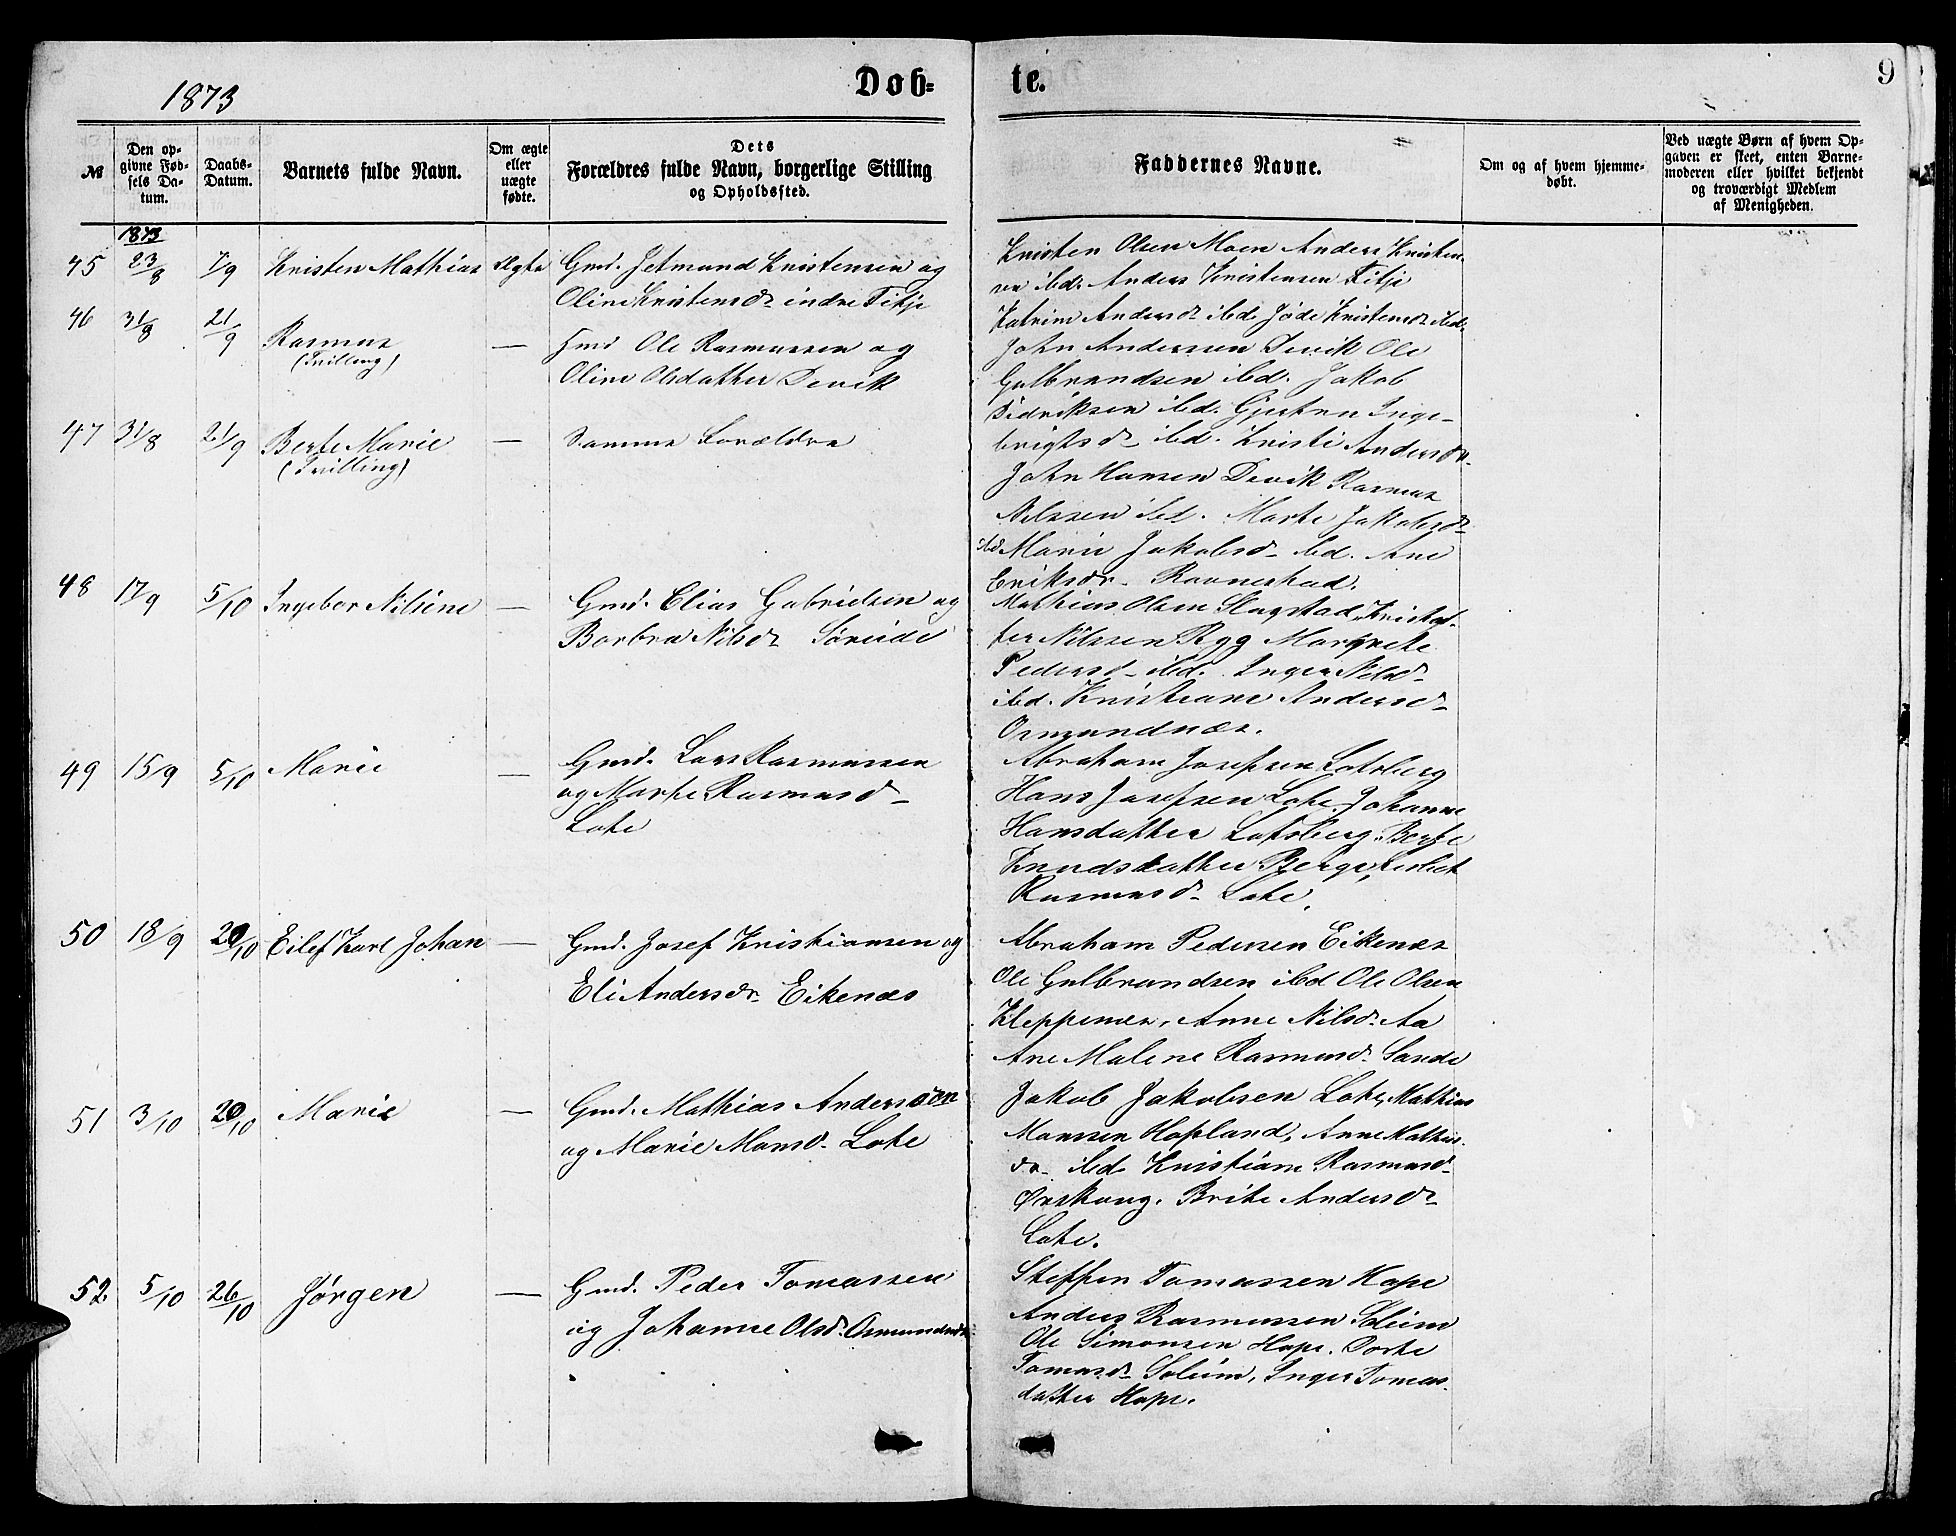 1873
Døb=
te.
9
№
Den op-
givne Fød-
sels Da-
tum.
Daabs-
Datum.
Barnets fulde Navn.
Om ægte
eller
uægte
fødte.
Dets
Forældres fulde Navn, borgerlige Stilling
og Opholdssted.
Faddernes Navne.
Om og af hvem hjemme-
døbt.
Ved uægte Børn af hvem Op-
gaven er skeet, enten Barne-
moderen eller hvilket bekjendt
og troværdigt Medlem
af Menigheden.
1873
45 23/8 7/9 Kristen Mathias Ægte Gmd. Jetmund Kristensen og
Oline Kristensdr indre Fitje
Kristen Olsen Moen Anders Kristen-
sen ibd. Anders Kristensen Fitje
Katrine Andersdr ibd. Jøde Kristensdr ibd.
46 31/8 21/9 Rasmus
(Tvilling)
— Hmd Ole Rasmussen og
Oline Olsdatter Devik
John Anderssen Devik Ole
Gulbrandsen ibd. Jakob
Didriksen ibd. Gjertru Inge-
brigtsdr ibd. Kristi Andersdr
47 31/8 21/9 Berte Marie
(Tvilling)
— Samme Forældre
John Hansen Devik Rasmus
Nilssen ibd. Marte Jakobsdr
ibd Marie Jakobsdr ibd. Ane
Eriksdr Ravnestad.
48 17/9 5/10 Ingebor Nilsine — Gmd. Elias Gabrielsen og
Barbra Nilsdr Søreide
Mathias Olsen Slagstad, Kristof-
fer Nilssen Rygg Margrete
Pedersdr ibd. Inger Nilsdr
ibd. Kristiane Andersdr
Osmundnæs.
49 15/9 5/10 Marie — Gmd. Lars Rasmussen
og Marte Rasmusdr
Lote
Abraham Josefsen Lotsberg
Hans Josefsen Lote, Johanne
Hansdatter Lotsberg, Berte
Knudsdatter Berge, Lisbet
Rasmusdr Lote.
50 18/9 20/10 Eilef Karl Johan — Gmd. Josef Kristiansen og
Eli Andersdr Eikenæs
Abraham Pedersen Eikenæs
Ole Gulbrandsen ibd Ole Olsen
Kleppenes, Anne Nilsdr Aa
Ane Malene Rasmusdr Sande
51 3/10 20/10 Marie — Gmd. Mathias Anderssen
og Marie Monsdr Lote
Jakob Jakobsen Lote, Mathias
Monssen Hopland, Anne Mathias-
dr ibd. Kristiane Rasmusdr
Ørskoug. Brite Andersdr
Lote.
52 5/10 26/10 Jørgen — Gmd. Peder Tomassen
og Johanne Olsdr Osmundnæs
Steffen Tomassen Hope
Anders Rasmussen Soleim
Ole Simonsen Hope. Dorte
Tomasdr Soleim, Inger Tomas-
datter Hope.